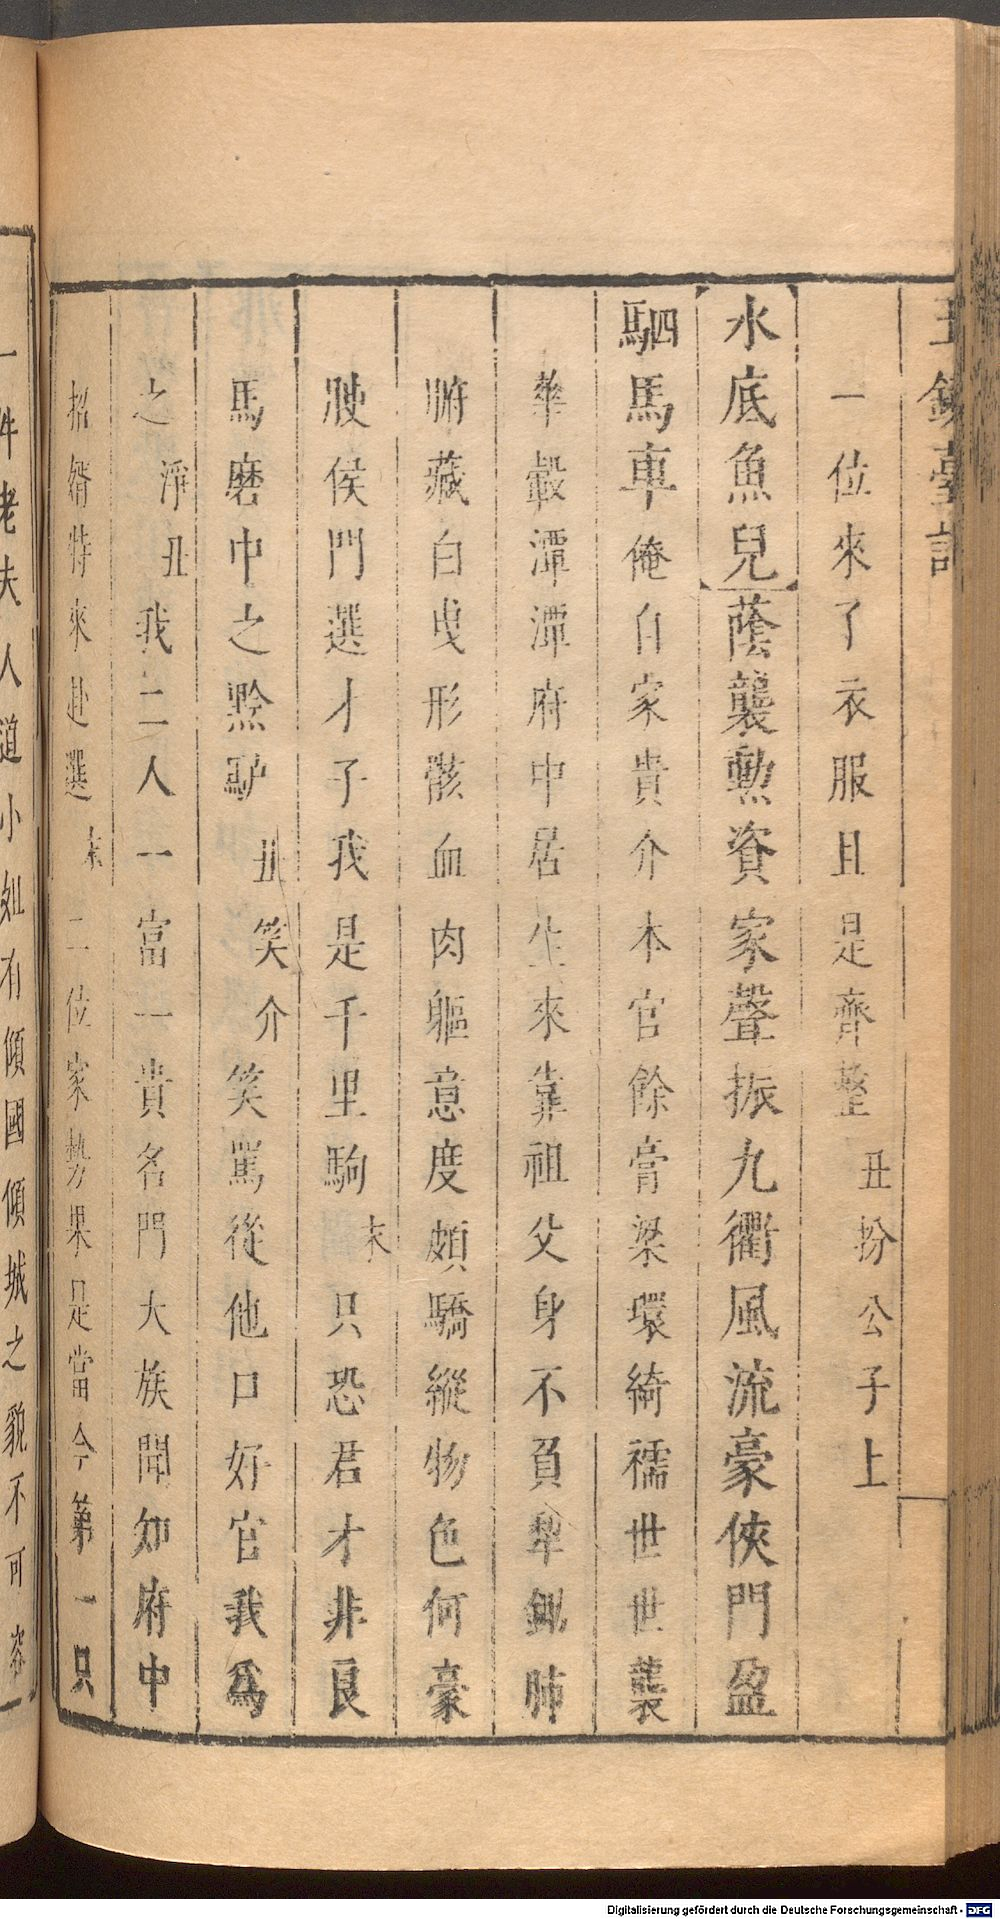 玉鏡臺記
一位來了衣服且是齊整丑扮公子上
水底魚兒蔭襲勲資家聲振九衢風流豪俠門盈
駟馬車俺自家貴介本官餘膏梁環綺襦世世襲
華轂潭潭府中居生來靠祖父身不負犂鋤肺
腑藏白曳形骸血肉軀意度頗驕縱物色何豪
駛侯門選才子我是千里駒末只恐君才非良
馬磨中之黔驢丑笑介笑罵從他口好官我爲
之淨丑我二人一富一貴名門大族聞知府中
招婿特來赴選末二位家勢果是當今第一只
一件老夫人道小姐有傾國傾城之貌不可
Digitalisierung gefördert durch die Deutsche Forschungsgemeinschaft - DFG